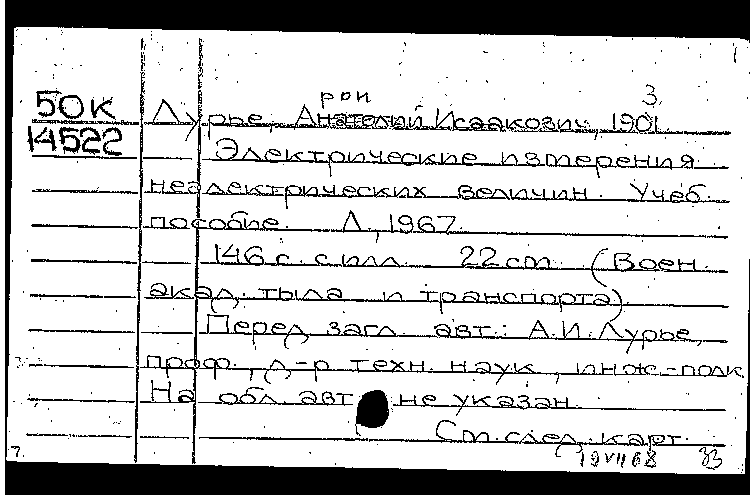 рон 3.
50К Лурье, Анатолий Исаакович, 1901
14522 Электрические измерения
неэлектрических величин. Учеб.
пособие. Л., 1967.
146 с. с илл. 22 см (Воен.
акад. тыла и транспорта)
Перед загл. авт.: А.И. Лурье,
проф., д-р техн. наук, инж.-полк
На обл. авт. не указан.
См. след. карт.
7. 19 VII 68 33